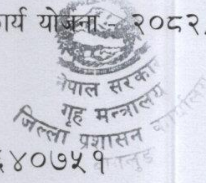 र्य योजना – २०८२
नेपाल सरकार
गृह मन्त्रालय
जिल्ला प्रशासन
६४०७५१